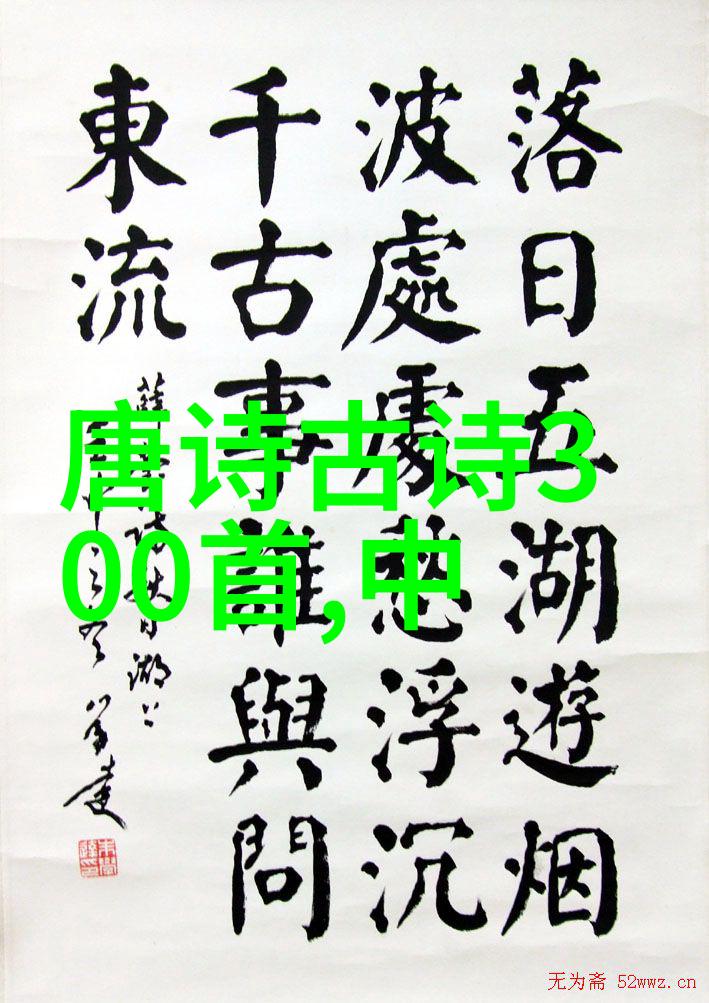 落日五湖遊烟
波處處愁浮沉
千古事誰與問
東流
唐诗古诗3
00首,中
无为斋 52wwz.cn